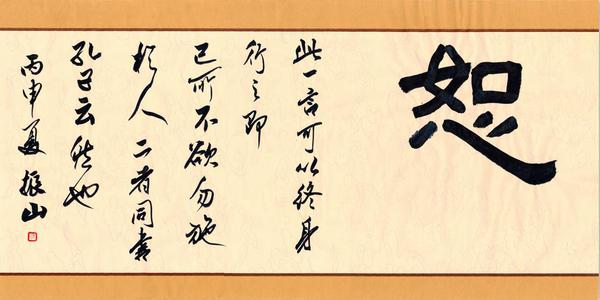 恕
此一言可以终身
行之即
己所不欲勿施
於人二者同
孔子云然也
丙申夏振山